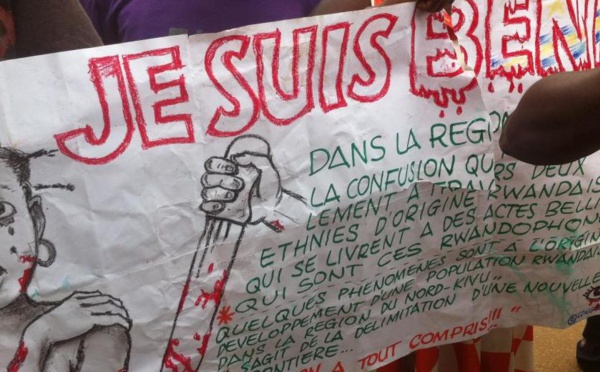 JE SUIS BEN
DANS LA REGION
LA CONFUSION QU DEUX
LEMENT A RWANDAIS
ETHNIES D'ORIGINE
QUI SE LIVRENT A DES ACTES BELLI
QUI SONT CES RWANDOPHON
* QUELQUES PHENOMENES SONT A L'ORIGIN
DEVELOPPEMENT D'UNE POPULATION RWANDAI
DANS LA REGION DU NORD-KIVU
S'AGIT DE LA DELIMITATION D'UNE NOUVELLE
ONTIERE...
A TOUT COMPRIS!!! "